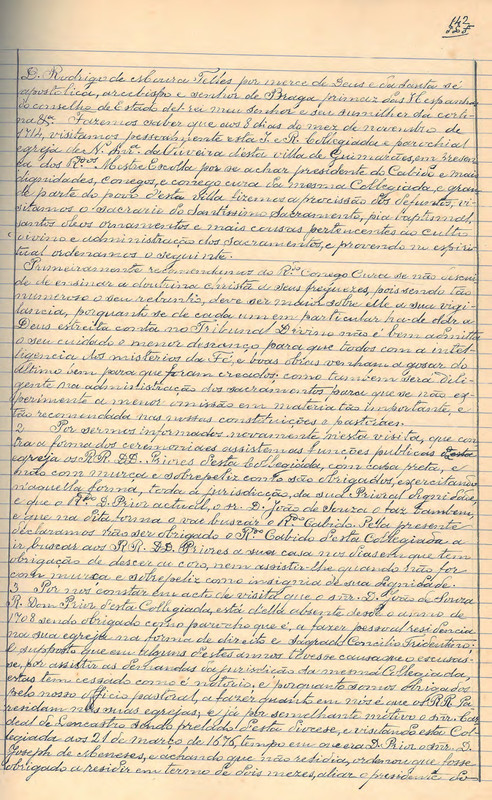 142
D. Rodrigo de Moura Telles por mercê de Deus e da Santa sé
apostolica, arcebispo e senhor de Braga primaz das Hespanhas
do conselho de Estado del-rei meu senhor e seu sumilher da corti-
na &ª. Fazemos saber que aos 8 dias do mez de novembro de
1714, visitamos pessoalmente esta I. e R. Collegiada e parochial
egreja de N. Snrª da Oliveira d'esta villa de Guimarães em presen-
ça dos R.dos Mestre Escola por se achar presidente do Cabido e mais
dignidades, conegos, e conego cura da mesma Collegiada, e gran-
de parte do povo d'esta villa fizemos a procissão dos defuntos, vi-
sitamos o sacrario do Santissimo Sacramento, pia baptismal,
santos oleos ornamentos e mais cousas pertencentes ao culto
divino e administração dos sacramentos, e provendo no espiri-
tual ordenamos o seguinte.
Primeiramente recommendamos ao R.do Conego Cura se não descui-
de de ensinar a doutrina christã a seus freguezes, pois sendo tão
numeroso o seu rebanho, deve ser maior sobre elle a sua vigi-
lancia, porquanto se de cada um em particular ha-de dar a
Deus estreita conta no Tribunal Divino não é bem admitta
o seu cuidado o menor descanço para que todos com a intel-
ligencia dos misterios da Fé, e boas obras venham a gosar do
ultimo bem para que foram creados: como tambem será dili-
gente na administração dos sacramentos para que se não ex-
perimente a menor omissão em materia tão importante, e
tão recommendada nas nossas constituições e pastoraes.
2 Por sermos informados novamente n'esta visita, que con-
tra a forma dos ceremoniaes assistem as funcções publicas d'esta
egreja os RR. DD. Priores d'esta Collegiada, com capa preta, e
não com murça e sobrepeliz como são obrigados, exercitando
n'aquella forma, toda a jurisdicção, da sua Prioral dignidade,
e que o R.do D. Prior actual, o sr. D. João de Souza o faz tambem,
e que na dita forma o vae buscar o R.do Cabido. Pela presente
declaramos não ser obrigado o R.do Cabido d'esta Collegiada a
ir buscar aos RR. DD. Priores a sua casa nos dias em que tem
obrigação de descer ao coro, nem assistir-lhe quando não for
com murça e sobrepeliz como insignia de sua dignidade.
3 Por nos constar em acto de visita que o snr. D. João de Souza
R. Dom Prior d'esta Collegiada, está d'ella absente desde o anno de
1708 sendo obrigado como parocho que é, a fazer pessoal residencia
na sua egreja na forma de direito e Sagrado Concilio Tridentino:
e supposto que em alguns d'estes annos tivesse causa que o escusas-
se, por assistir as demandas da jurisdicção da mesma Collegiada,
estas tem cessado como é notorio, e porquanto somos obrigados
pelo nosso officio pastoral, a fazer quanto em nós é que os RR. Pa-
residam nas suas egrejas; e já por semelhante motivo o snr. Car-
deal de Lencastro sendo prelado d'esta diocese, e visitando esta Col-
legiada aos 21 de março de 1676, tempo em que era D. Prior o snr. D.
Joseph de Menezes, e achando que não residia, ordenou que fosse
obrigado a residir em termo de dois mezes, aliar o presidente do